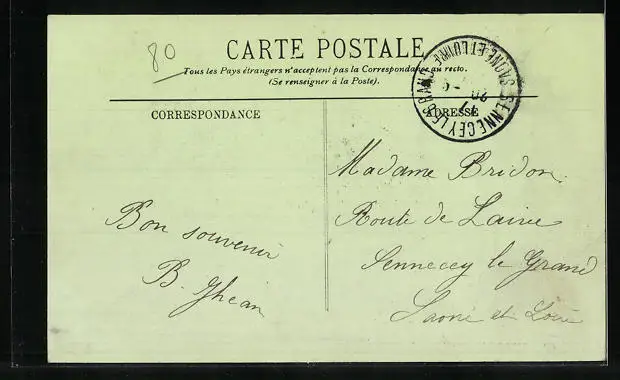 80
CARTE POSTALE
Tous les Pays étrangers n'acceptent pas la Correspondance au recto.
(Se renseigner à la Poste).
SENNECEY LE GRAND
SAONE-ET-LOIRE
CORRESPONDANCE
ADRESSE
Madame Bridon
Route de
Sennecey le Grand
Saone et Loire
Bon souvenir
B.